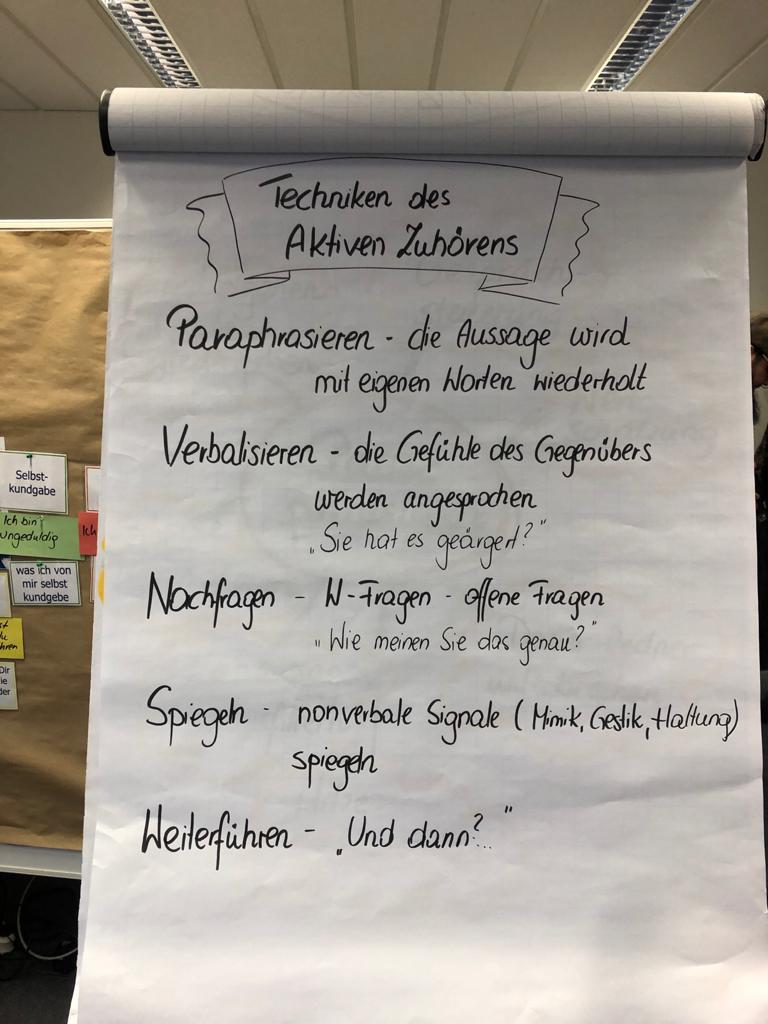 Techniken des
Aktiven Zuhörens
Paraphrasieren - die Aussage wird
mit eigenen Worten wiederholt
Verbalisieren - die Gefühle des Gegenübers
werden angesprochen
„Sie hat es geärgert?"
Nachfragen - W-Fragen - offene Fragen
"Wie meinen Sie das genau?"
Spiegeln - nonverbale Signale (Mimik, Gestik, Haltung)
spiegeln
Weiterführen - „Und dann?..."
Selbst-
kundgabe
Ich bin
ungeduldig
Ich
was ich von
mir selbst
kundgebe
Dir